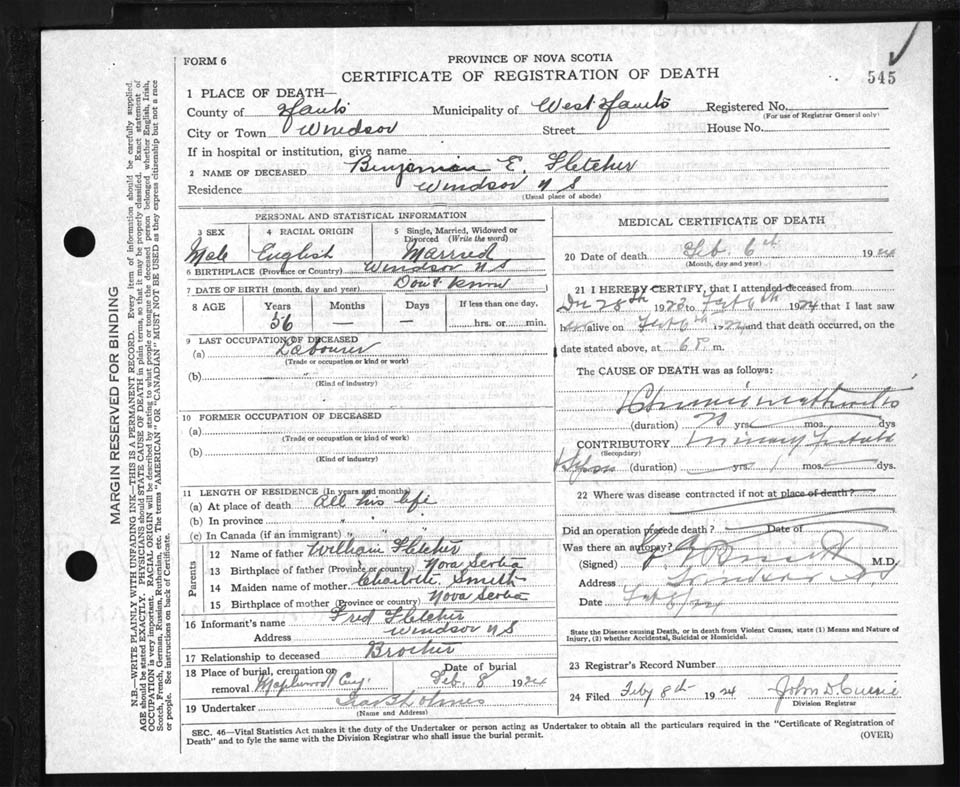 FORM 6
PROVINCE OF NOVA SCOTIA
CERTIFICATE OF REGISTRATION OF DEATH
545
MARGIN RESERVED FOR BINDING
N.B.—WRITE PLAINLY WITH UNFADING INK—THIS IS A PERMANENT RECORD. Every item of information should be carefully supplied.
AGE should be stated EXACTLY. PHYSICIANS should STATE CAUSE OF DEATH in plain terms, so that it may be properly classified. Exact statement of
OCCUPATION is very important. RACIAL ORIGIN will be described by stating to what people or tongue the deceased person belonged whether English, Irish,
Scotch, French, German, Russian, Ruthenian, etc. The terms "AMERICAN" OR "CANADIAN" MUST NOT BE USED as they express citizenship but not a race
or people. See instructions on back of Certificate.
1 PLACE OF DEATH—
County of Hants Municipality of West Hants Registered No.
(For use of Registrar General only)
City or Town Windsor Street House No.
If in hospital or institution, give name
2 NAME OF DECEASED Benjamin E. Fletcher
Residence Windsor N S
(Usual place of abode)
PERSONAL AND STATISTICAL INFORMATION
3 SEX 4 RACIAL ORIGIN 5 Single, Married, Widowed or
Divorced (Write the word)
Male English Married
6 BIRTHPLACE (Province or Country) Windsor N S
7 DATE OF BIRTH (month, day and year) Don't know
8 AGE Years Months Days If less than one day,
56 — hrs. or min.
9 LAST OCCUPATION OF DECEASED
(a) Labourer
(Trade or occupation or kind or work)
(b)
(Kind of industry)
10 FORMER OCCUPATION OF DECEASED
(a)
(Trade or occupation or kind of work)
(b)
(Kind of industry)
11 LENGTH OF RESIDENCE (In years and months)
(a) At place of death All his life
(b) In province " "
(c) In Canada (if an immigrant) " " "
Parents
12 Name of father William Fletcher
13 Birthplace of father (Province or country) Nova Scotia
14 Maiden name of mother Charlotte Smith
15 Birthplace of mother (Province or country) Nova Scotia
16 Informant's name Fred Fletcher
Address Windsor N S
17 Relationship to deceased Brother
18 Place of burial, cremation or Date of burial
removal Maplewood Cey. Feb. 8 1924
19 Undertaker
(Name and Address)
MEDICAL CERTIFICATE OF DEATH
20 Date of death Feb. 6th 1924
(Month, day and year)
21 I HEREBY CERTIFY, that I attended deceased from
Dec 28th 1923 to Feb 6th 1924 that I last saw
him alive on Feb 6th 1924 and that death occurred, on the
date stated above, at 6 P. m.
The CAUSE OF DEATH was as follows:
Chronic
(duration) yrs. mos. dys
CONTRIBUTORY
(Secondary)
(duration) yrs. 1 mos. dys.
22 Where was disease contracted if not at place of death?
Did an operation precede death? Date of
Was there an autopsy?
(Signed) M.D.
Address Windsor NS
Date Feb 8/24
State the Disease causing Death, or in death from Violent Causes, state (1) Means and Nature of
Injury, (2) whether Accidental, Suicidal or Homicidal.
23 Registrar's Record Number
24 Filed Feby 8th 1924 John D Currie
Division Registrar
SEC. 46—Vital Statistics Act makes it the duty of the Undertaker or person acting as Undertaker to obtain all the particulars required in the "Certificate of Registration of
Death" and to fyle the same with the Division Registrar who shall issue the burial permit.
(OVER)